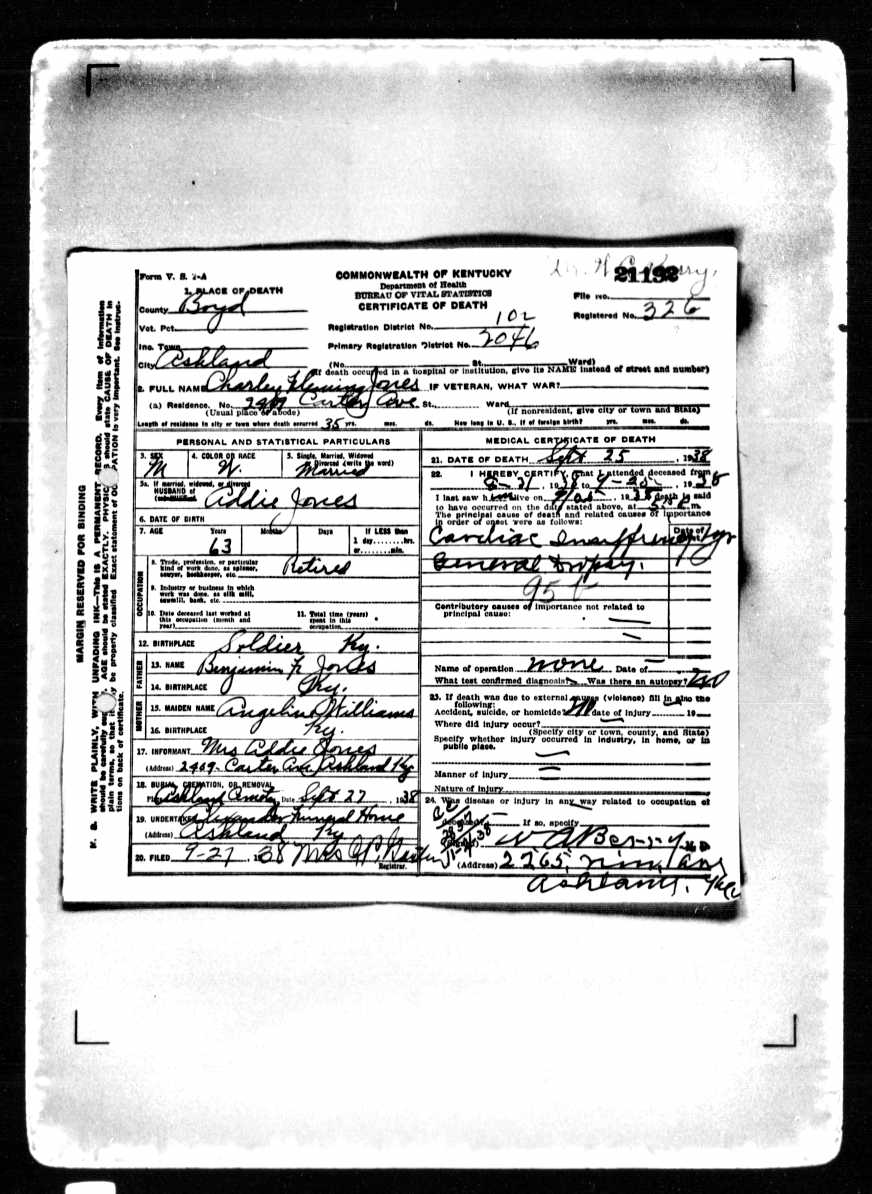 Form V. S. 1-A
COMMONWEALTH OF KENTUCKY
Department of Health
BUREAU OF VITAL STATISTICS
CERTIFICATE OF DEATH
21192
File No.
Registered No. 326
1. PLACE OF DEATH
County Boyd
Vot. Pct.
Registration District No. 102
Inc. Town
Primary Registration District No. 2046
City Ashland
(No. St. Ward)
(If death occurred in a hospital or institution, give its NAME instead of street and number)
2. FULL NAME Charley Fleming Jones IF VETERAN, WHAT WAR?
(a) Residence. No. 2409 Carter Ave St., Ward
(Usual place of abode) (If nonresident, give city or town and State)
Length of residence in city or town where death occurred 35 yrs. mos. ds. How long in U. S., if of foreign birth? yrs. mos. ds.
PERSONAL AND STATISTICAL PARTICULARS
3. SEX M
4. COLOR OR RACE W.
5. Single, Married, Widowed or Divorced (write the word) Married
5a. If married, widowed, or divorced
HUSBAND of Addie Jones
6. DATE OF BIRTH
7. AGE Years 63 Months Days If LESS than 1 day, hrs. or min.
OCCUPATION
8. Trade, profession, or particular kind of work done, as spinner, sawyer, bookkeeper, etc. Retired
9. Industry or business in which work was done, as silk mill, sawmill, bank, etc.
10. Date deceased last worked at this occupation (month and year)
11. Total time (years) spent in this occupation
12. BIRTHPLACE Soldier Ky.
FATHER
13. NAME Benjamin F. Jones
14. BIRTHPLACE Ky.
MOTHER
15. MAIDEN NAME Angeline Williams
16. BIRTHPLACE Ky.
17. INFORMANT Mrs Addie Jones
(Address) 2409 Carter Ave, Ashland Ky
18. BURIAL, CREMATION, OR REMOVAL
Ashland Date Sept 27, 1938
19. UNDERTAKER Funeral Home
(Address) Ashland Ky
20. FILED 9-27, 1938 Mrs
Registrar.
MEDICAL CERTIFICATE OF DEATH
21. DATE OF DEATH Sept 25, 1938
22. I HEREBY CERTIFY, That I attended deceased from
, 1938 to 9-25, 1938
I last saw h alive on 9/25, 1938 death is said
to have occurred on the date stated above, at m.
The principal cause of death and related causes of importance
in order of onset were as follows:
Date of onset
Cardiac Insufficiency
General Dropsy.
95
Contributory causes of importance not related to
principal cause:
Name of operation none Date of
What test confirmed diagnosis? Was there an autopsy? no
23. If death was due to external causes (violence) fill in also the
following:
Accident, suicide, or homicide? no date of injury 19
Where did injury occur?
(Specify city or town, county, and State)
Specify whether injury occurred in industry, in home, or in
public place.
Manner of injury
Nature of injury
24. Was disease or injury in any way related to occupation of
deceased? If so, specify
W. A. Berry M. D.
(Address)
Ashland, Ky
MARGIN RESERVED FOR BINDING